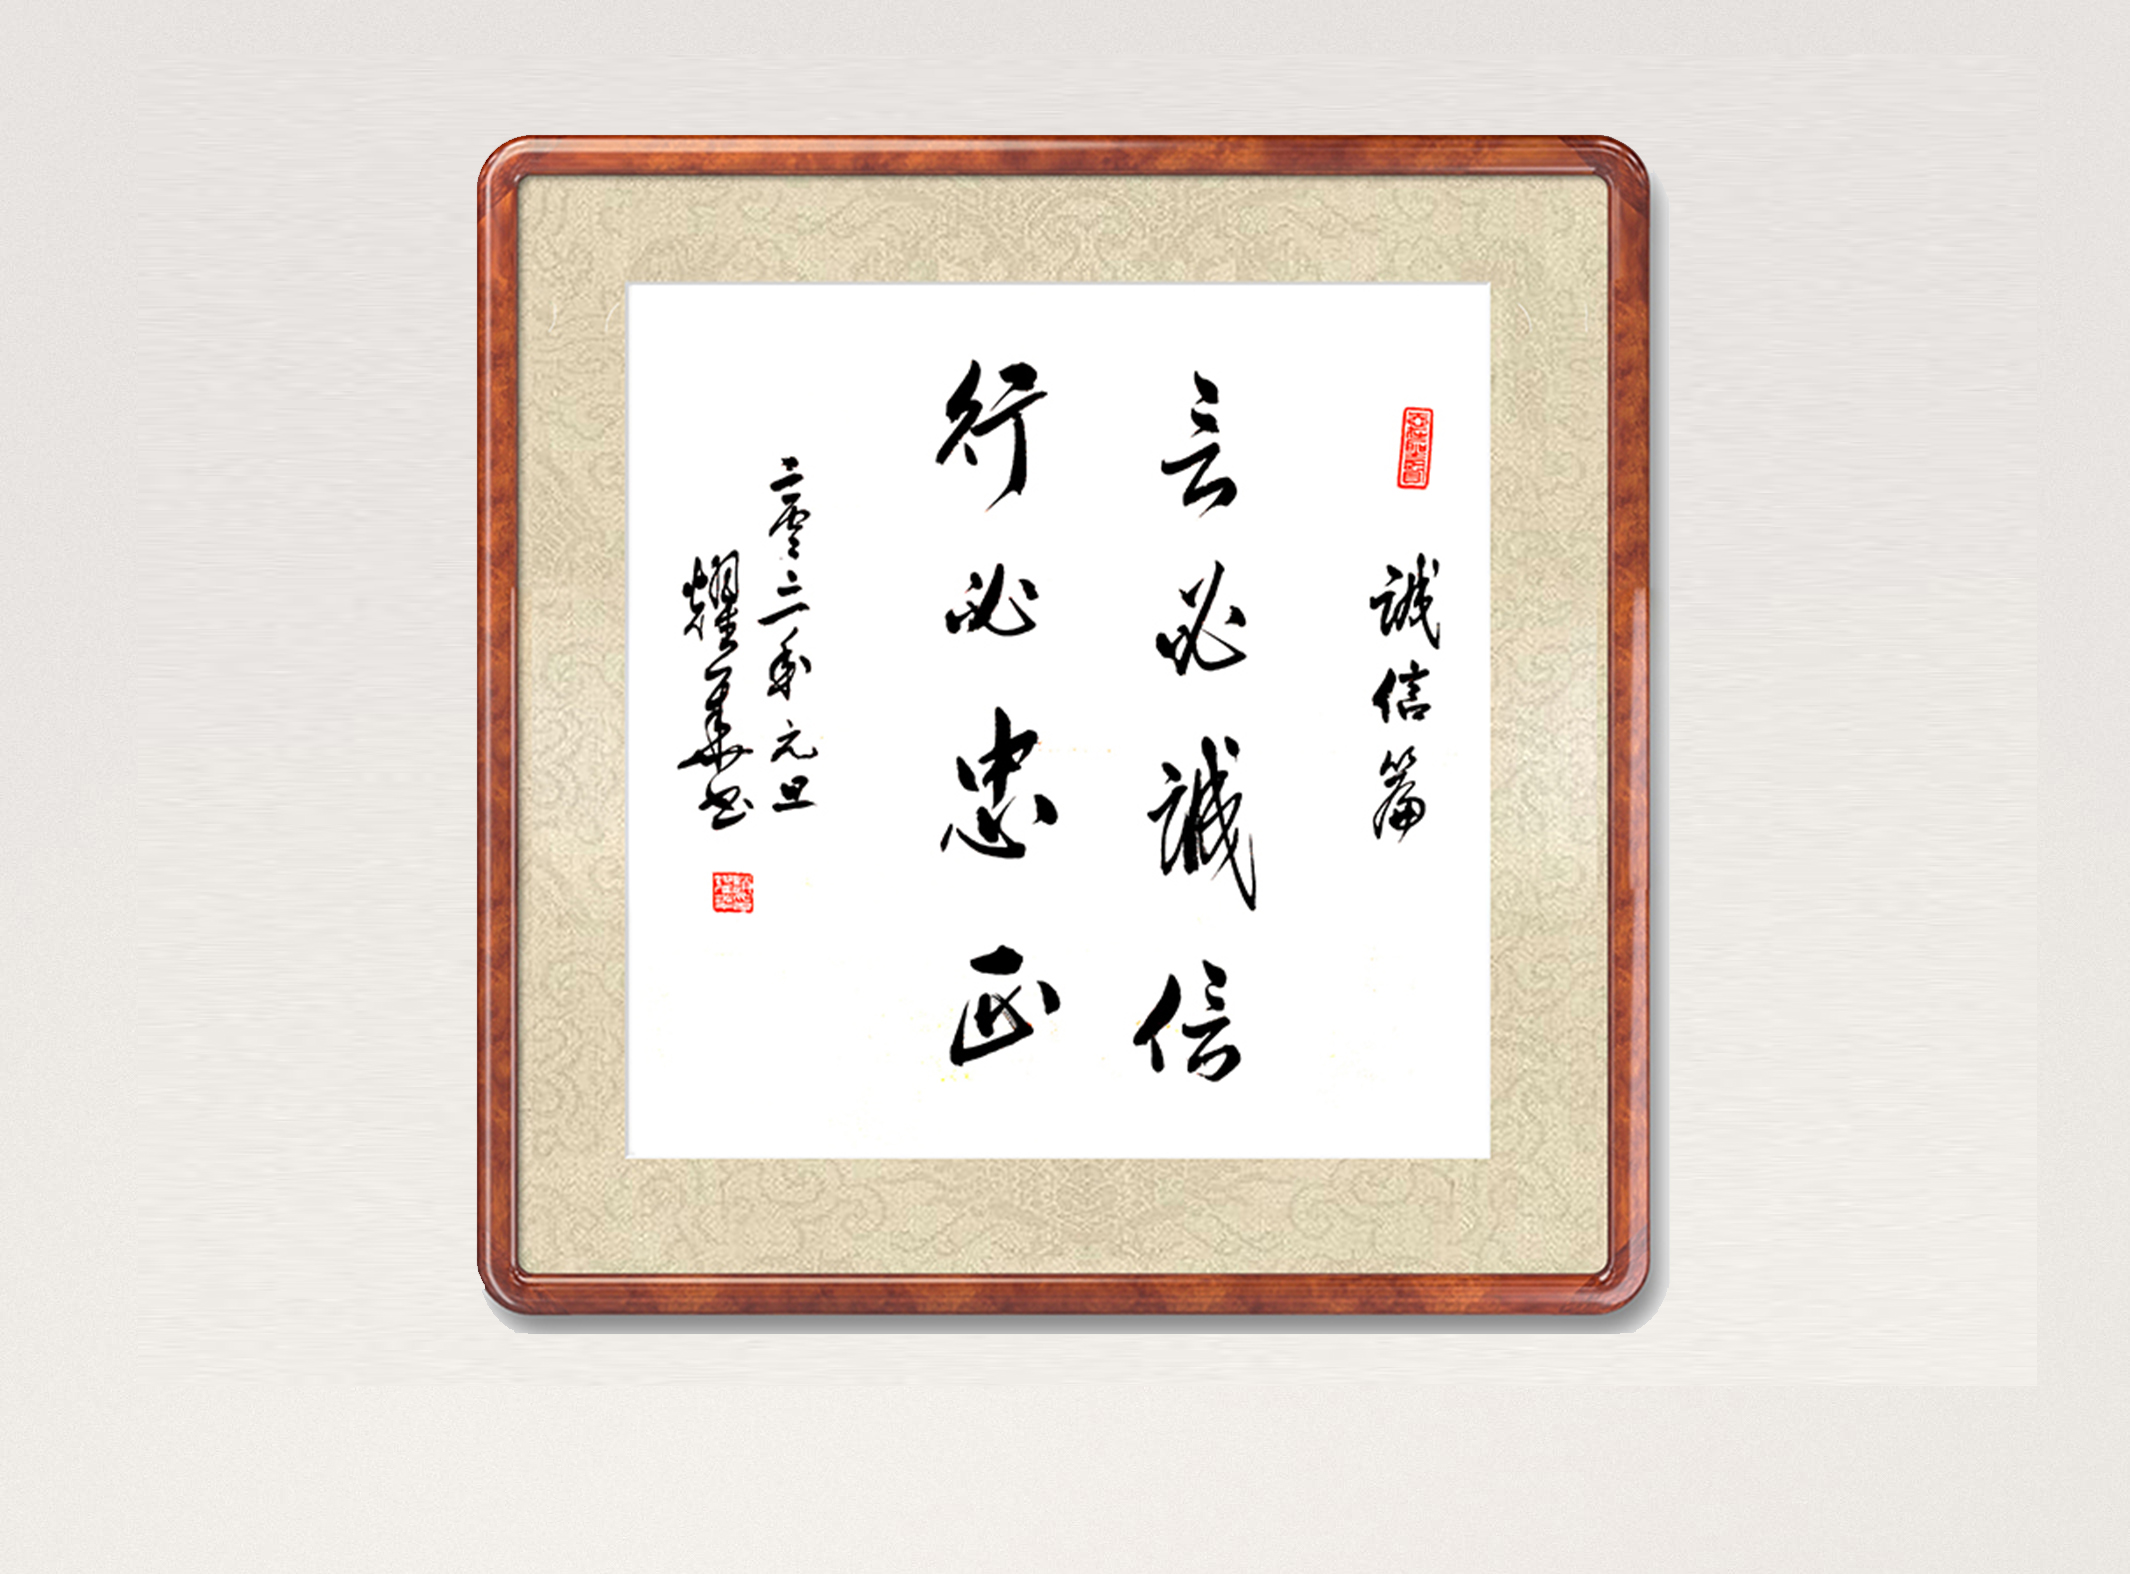 誠信篇
言必誠信
行必忠正
二零二一年元旦
耀華书